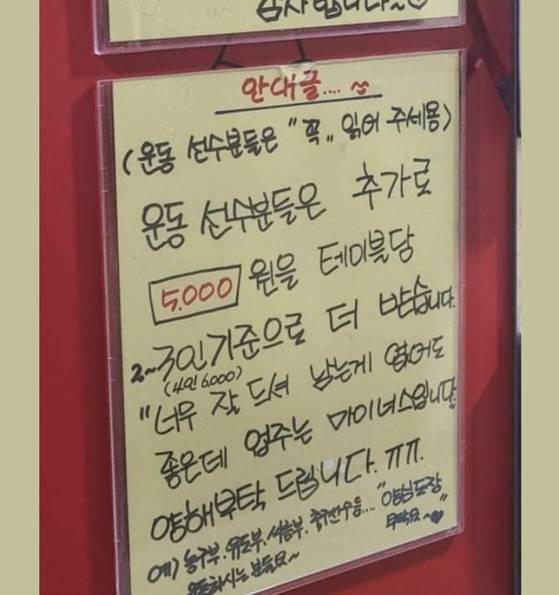 감사합니다~
안내글....
(운동 선수분들은 "꼭" 읽어 주세용)
운동 선수분들은 추가로
5.000 원을 테이블당
2~3인기준으로 더 받습니다.
(4인 6,000)
"너무 잘 드셔 남는게 없어도
좋은데 업주는 마이너스입니다.
양해부탁 드립니다. ㅠㅠ.
예) 농구부.유도부.씨름부. 축구선수등... "양심도장"
운동하시는 분들요~